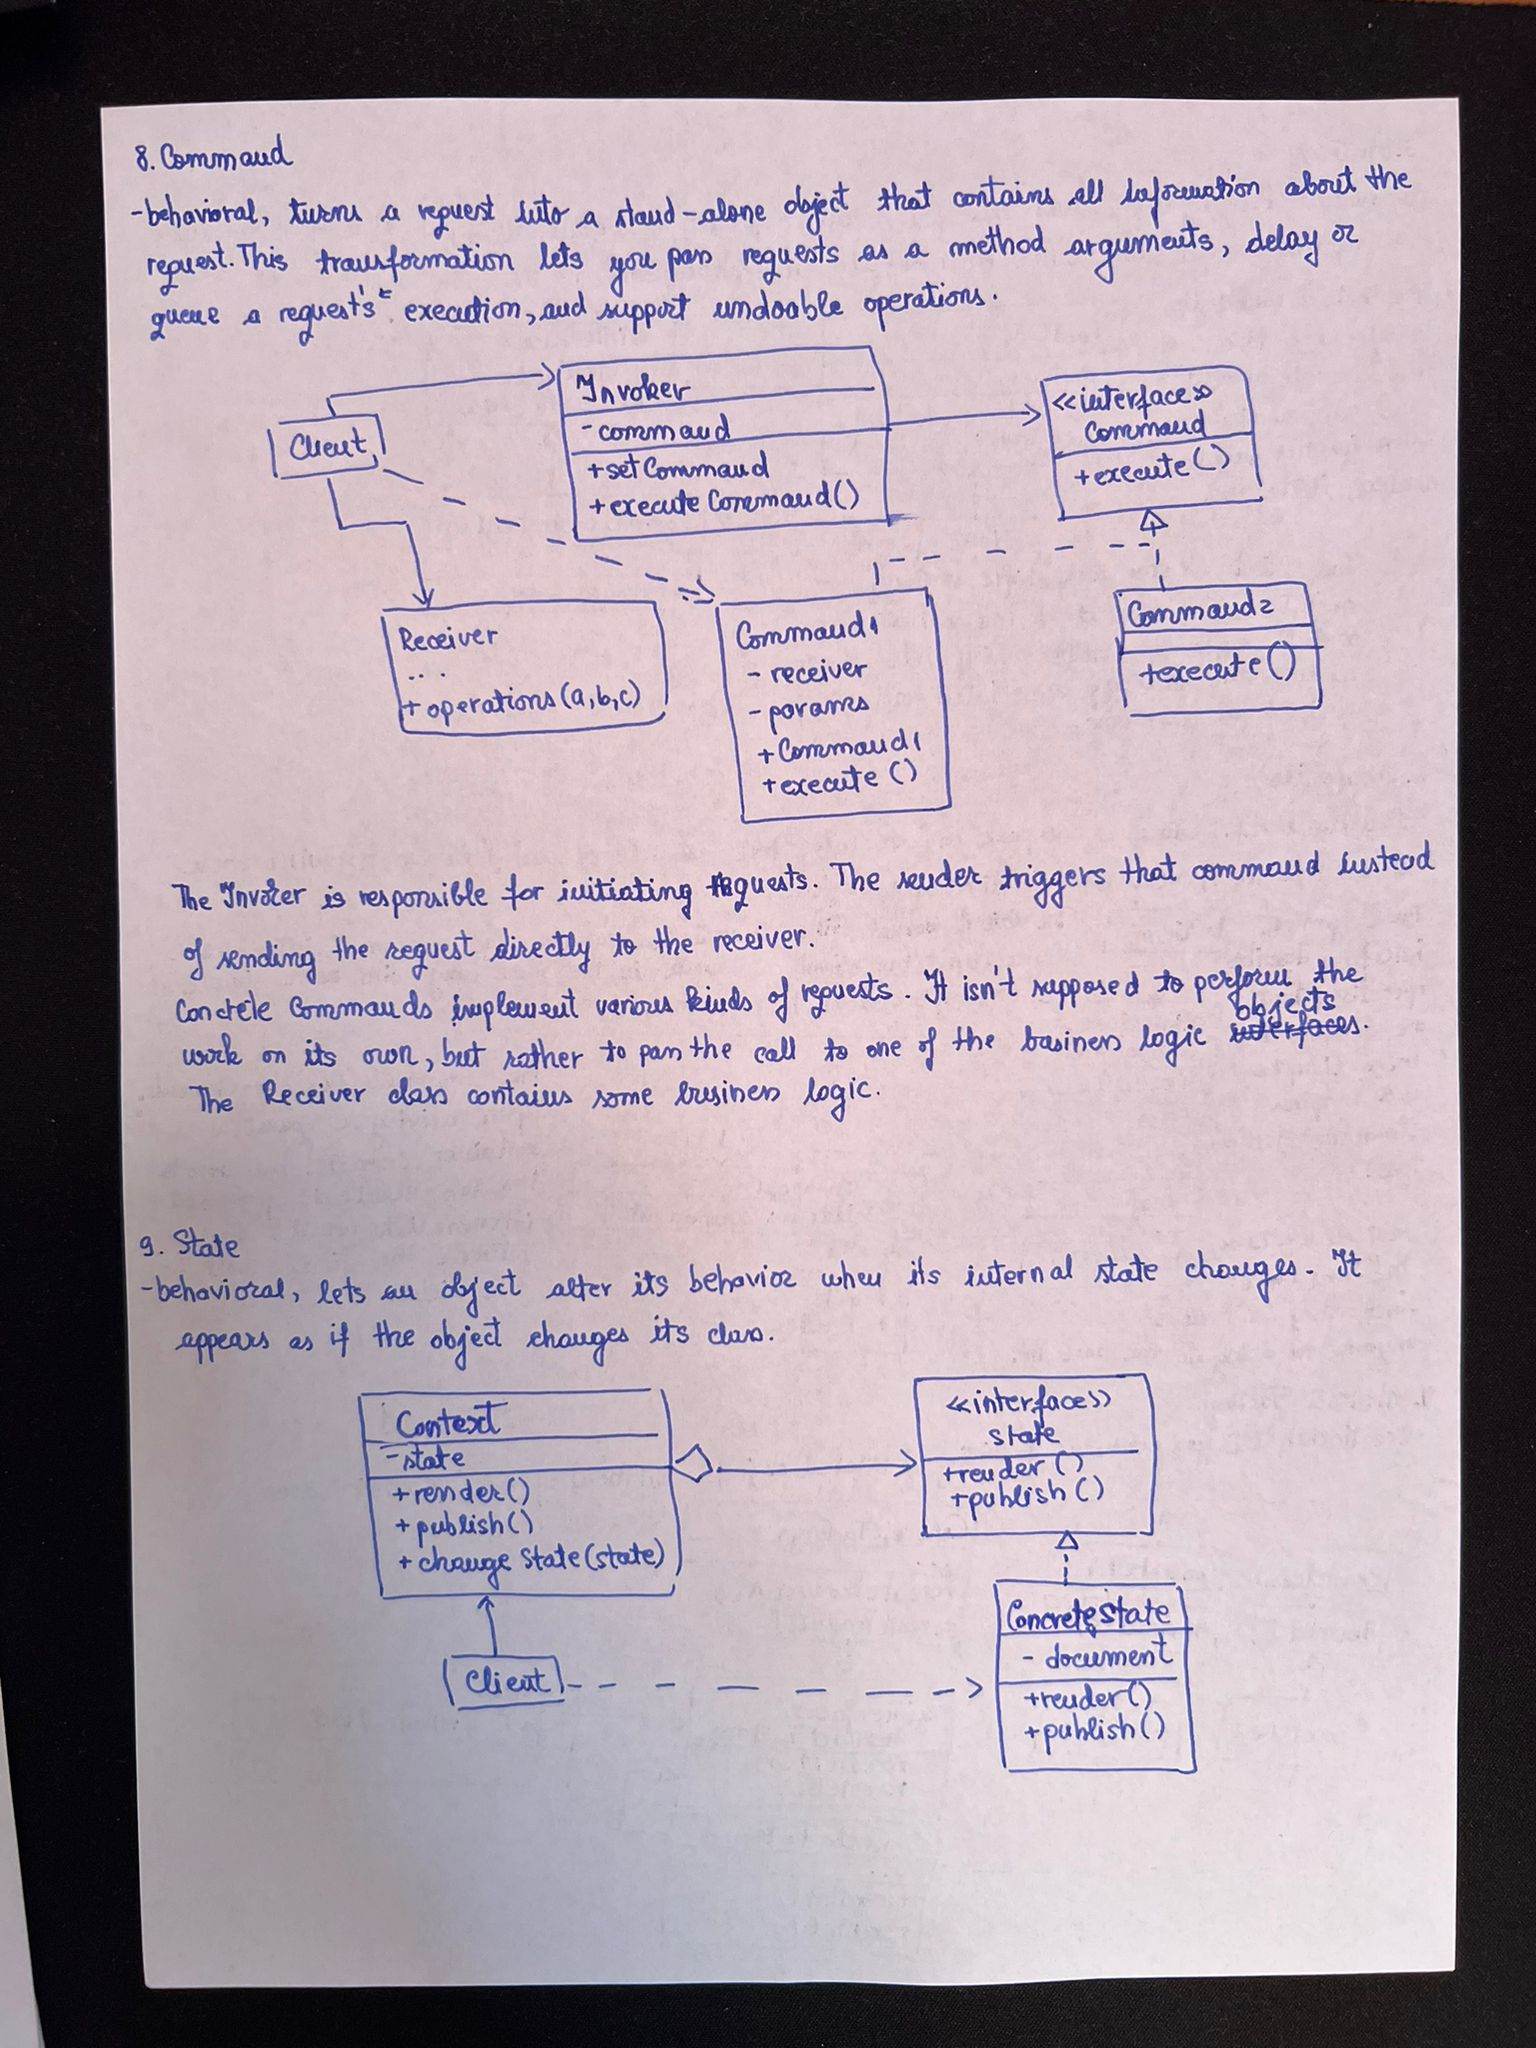 8. Command
-behavioral, turns a request into a stand-alone object that contains all information about the
request. This transformation lets you pass requests as a method arguments, delay or
queue a request's execution, and support undoable operations.
Client
Invoker
-command
+setCommand
+execute Command()
<<interface>>
Command
+execute()
Receiver
...
+ operations(a,b,c)
Command1
- receiver
- params
+Command1
+execute ()
Command2
+execute()
The Invoker is responsible for initiating requests. The sender triggers that command instead
of sending the request directly to the receiver.
Concrete Commands implement various kinds of requests. It isn't supposed to perform the
objects
work on its own, but rather to pass the call to one of the business logic interfaces.
The Receiver class contains some business logic.
9. State
-behavioral, lets an object alter its behavior when its internal state changes. It
appears as if the object changes its class.
Context
-state
+render()
+publish()
+change State(state)
<<interface>>
state
+render ()
+publish ()
Client
ConcreteState
- document
+render()
+publish()